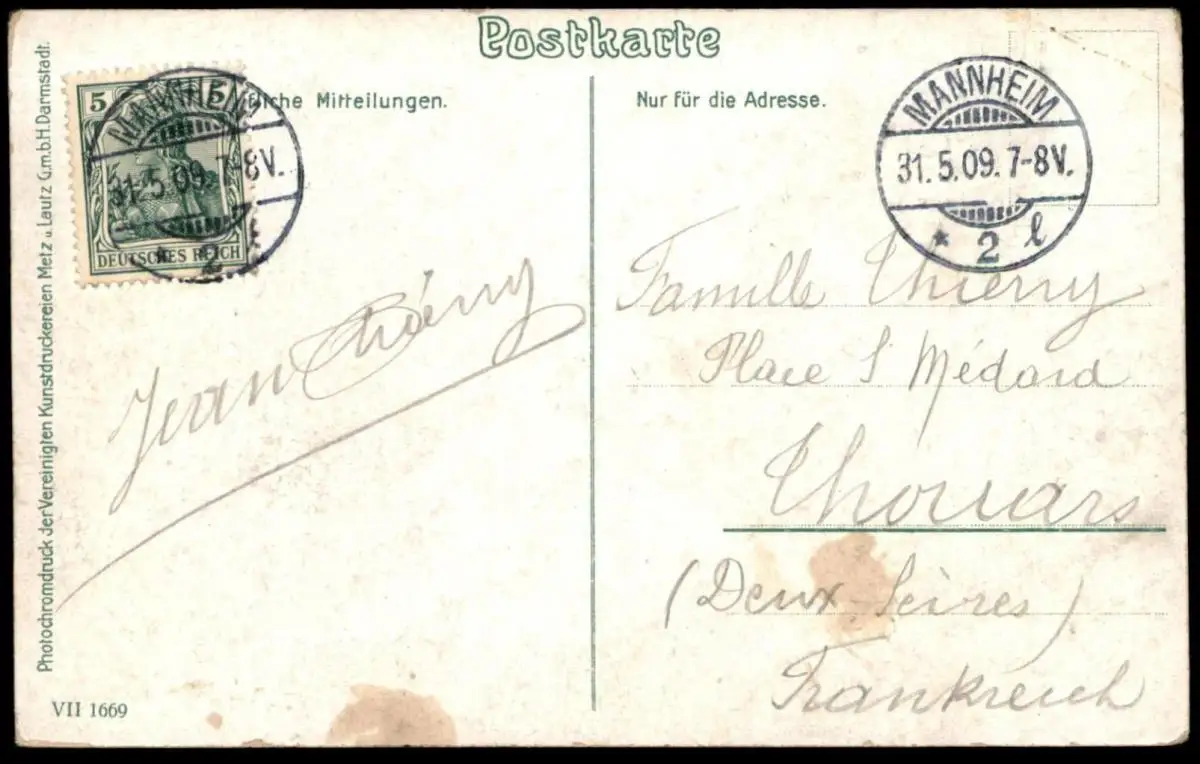 Postkarte
5 5
DEUTSCHES REICH
MANNHEIM
31.5.09. 7-8V.
* 2 l
liche Mitteilungen.
Nur für die Adresse.
MANNHEIM
31.5.09. 7-8V.
* 2 l
Photochromdruck der Vereinigten Kunstdruckereien Metz u. Lautz G.m.b.H. Darmstadt.
Jean Thiérry
Famille Thierry
Place S Médard
Thouars
(Deux-Sèvres)
Frankreich
VII 1669